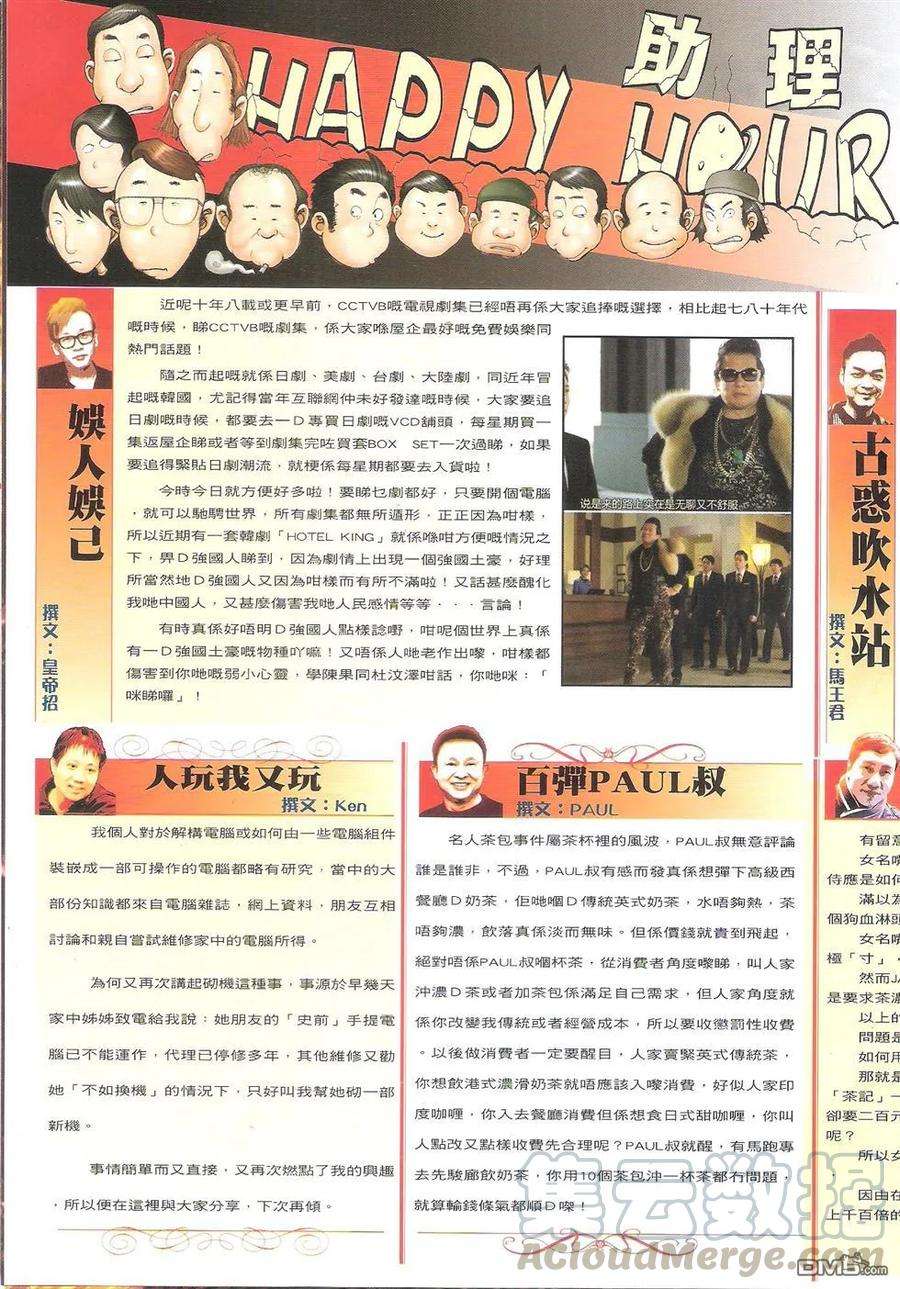 助理
HAPPY HOUR
娛人娛己
撰文：皇帝招
近呢十年八載或更早前，CCTVB嘅電視劇集已經唔再係大家追捧嘅選擇，相比起七八十年代
嘅時候，睇CCTVB嘅劇集，係大家喺屋企最好嘅免費娛樂同
熱門話題！
隨之而起嘅就係日劇、美劇、台劇、大陸劇，同近年冒
起嘅韓國，尤記得當年互聯網仲未好發達嘅時候，大家要追
日劇嘅時候，都要去一D專買日劇嘅VCD舖頭，每星期買一
集返屋企睇或者等到劇集完咗買套BOX SET一次過睇，如果
要追得緊貼日劇潮流，就梗係每星期都要去入貨啦！
今時今日就方便好多啦！要睇乜劇都好，只要開個電腦
，就可以馳騁世界，所有劇集都無所遁形，正正因為咁樣，
所以近期有一套韓劇「HOTEL KING」就係喺咁方便嘅情況之
下，畀D強國人睇到，因為劇情上出現一個強國土豪，好理
所當然地D強國人又因為咁樣而有所不滿啦！又話甚麼醜化
我哋中國人，又甚麼傷害我哋人民感情等等．．．言論！
有時真係好唔明D強國人點樣諗嘢，咁呢個世界上真係
有一D強國土豪嘅物種吖嘛！又唔係人哋老作出嚟，咁樣都
傷害到你哋嘅弱小心靈，學陳果同杜汶澤咁話，你哋咪：「
咪睇囉」！
说是来的路上实在是无聊又不舒服
古惑吹水站
撰文：馬王君
人玩我又玩
撰文：Ken
我個人對於解構電腦或如何由一些電腦組件
裝嵌成一部可操作的電腦都略有研究，當中的大
部份知識都來自電腦雜誌，網上資料，朋友互相
討論和親自嘗試維修家中的電腦所得。
為何又再次講起砌機這種事，事源於早幾天
家中姊姊致電給我說：她朋友的「史前」手提電
腦已不能運作，代理已停修多年，其他維修又勸
她「不如換機」的情況下，只好叫我幫她砌一部
新機。
事情簡單而又直接，又再次燃點了我的興趣
，所以便在這裡與大家分享，下次再傾。
百彈PAUL叔
撰文：PAUL
名人茶包事件屬茶杯裡的風波，PAUL叔無意評論
誰是誰非，不過，PAUL叔有感而發真係想彈下高級西
餐廳D奶茶，佢哋嗰D傳統英式奶茶，水唔夠熱，茶
唔夠濃，飲落真係淡而無味。但係價錢就貴到飛起，
絕對唔係PAUL叔嗰杯茶，從消費者角度嚟睇，叫人家
沖濃D茶或者加茶包係滿足自己需求，但人家角度就
係你改變我傳統或者經營成本，所以要收懲罰性收費
。以後做消費者一定要醒目，人家賣緊英式傳統茶，
你想飲港式濃滑奶茶就唔應該入嚟消費，好似人家印
度咖喱，你入去餐廳消費但係想食日式甜咖喱，你叫
人點改又點樣收費先合理呢？PAUL叔就醒，有馬跑專
去先駿廊飲奶茶，你用10個茶包沖一杯茶都冇問題，
就算輸錢條氣都順D㗎！
有留意
女名嘴
侍應是如何
滿以為
個狗血淋頭
女名嘴
極「寸」，
然而JA
是要求茶濃
以上的
問題是
如何用
那就是
「茶記」一
卻要二百元
呢？
所以女
．
因由在
上千百倍的
集云数据
ACloudMerge.com
DM5.com